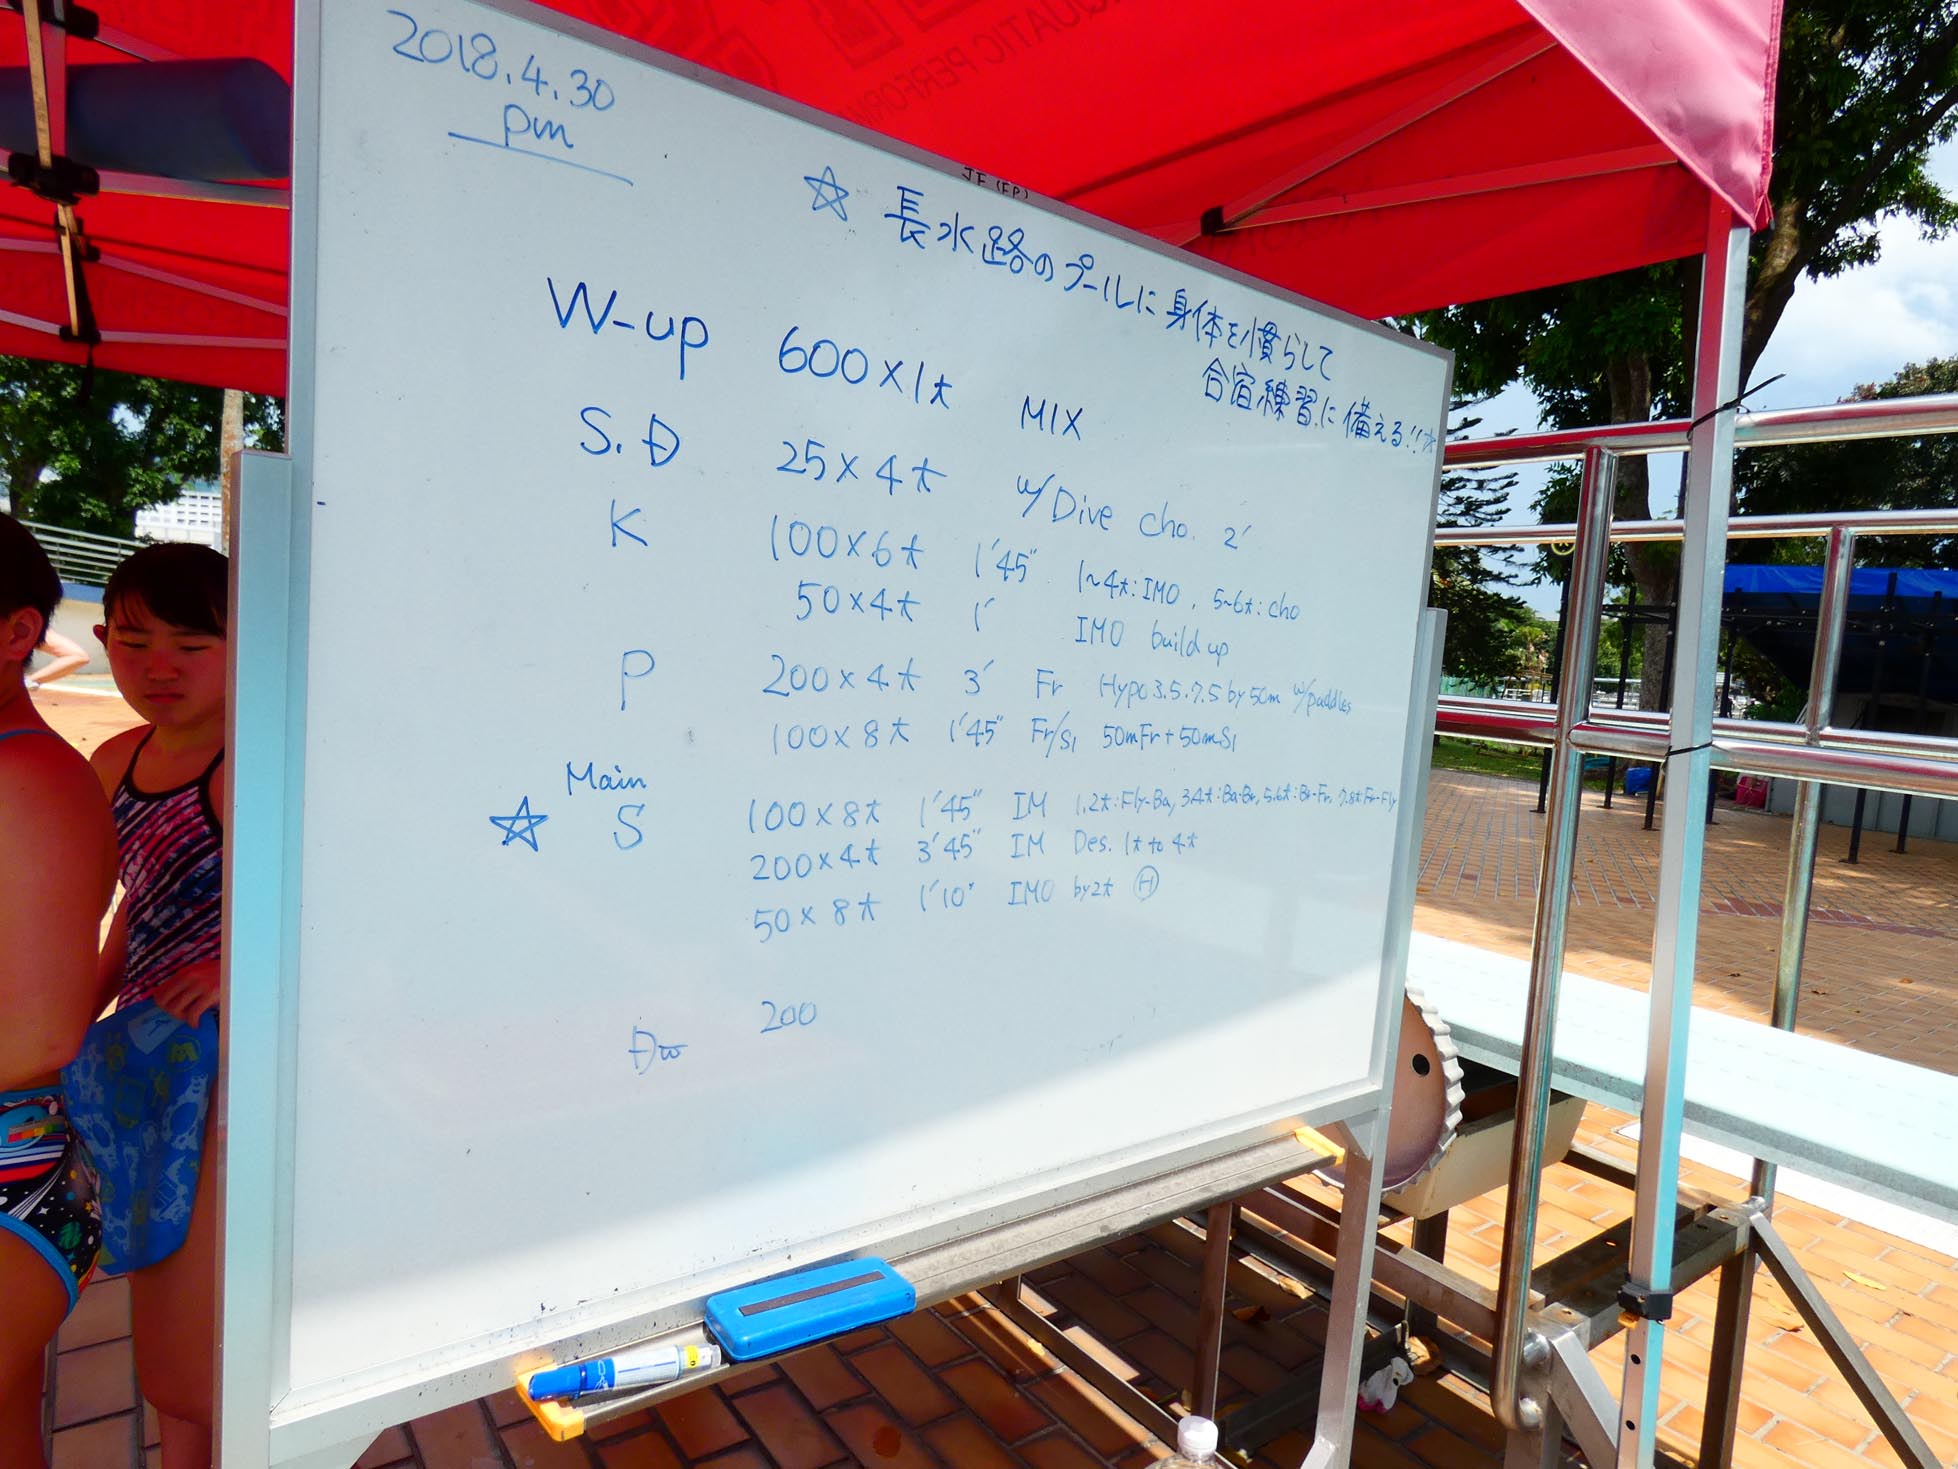 2018.4.30
pm
☆ 長水路のプールに身体を慣らして
合宿練習に備える!!☆
W-up 600×1t MIX
S.D 25×4t w/Dive cho. 2'
K 100×6t 1'45" 1~4t:IMO, 5~6t:cho
50×4t 1' IMO build up
P 200×4t 3' Fr Hypo3.5.7.5 by 50m w/paddles
100×8t 1'45" Fr/S1 50mFr+50mS1
Main
☆ S 100×8t 1'45" IM 1.2t:Fly-Ba, 3.4t:Ba-Br, 5.6t:Br-Fr, 7.8t:Fr-Fly
200×4t 3'45" IM Des. 1t to 4t
50×8t 1'10" IMO by2t Ⓗ
Dw 200
JF (FP)
QUATIC PERFORM